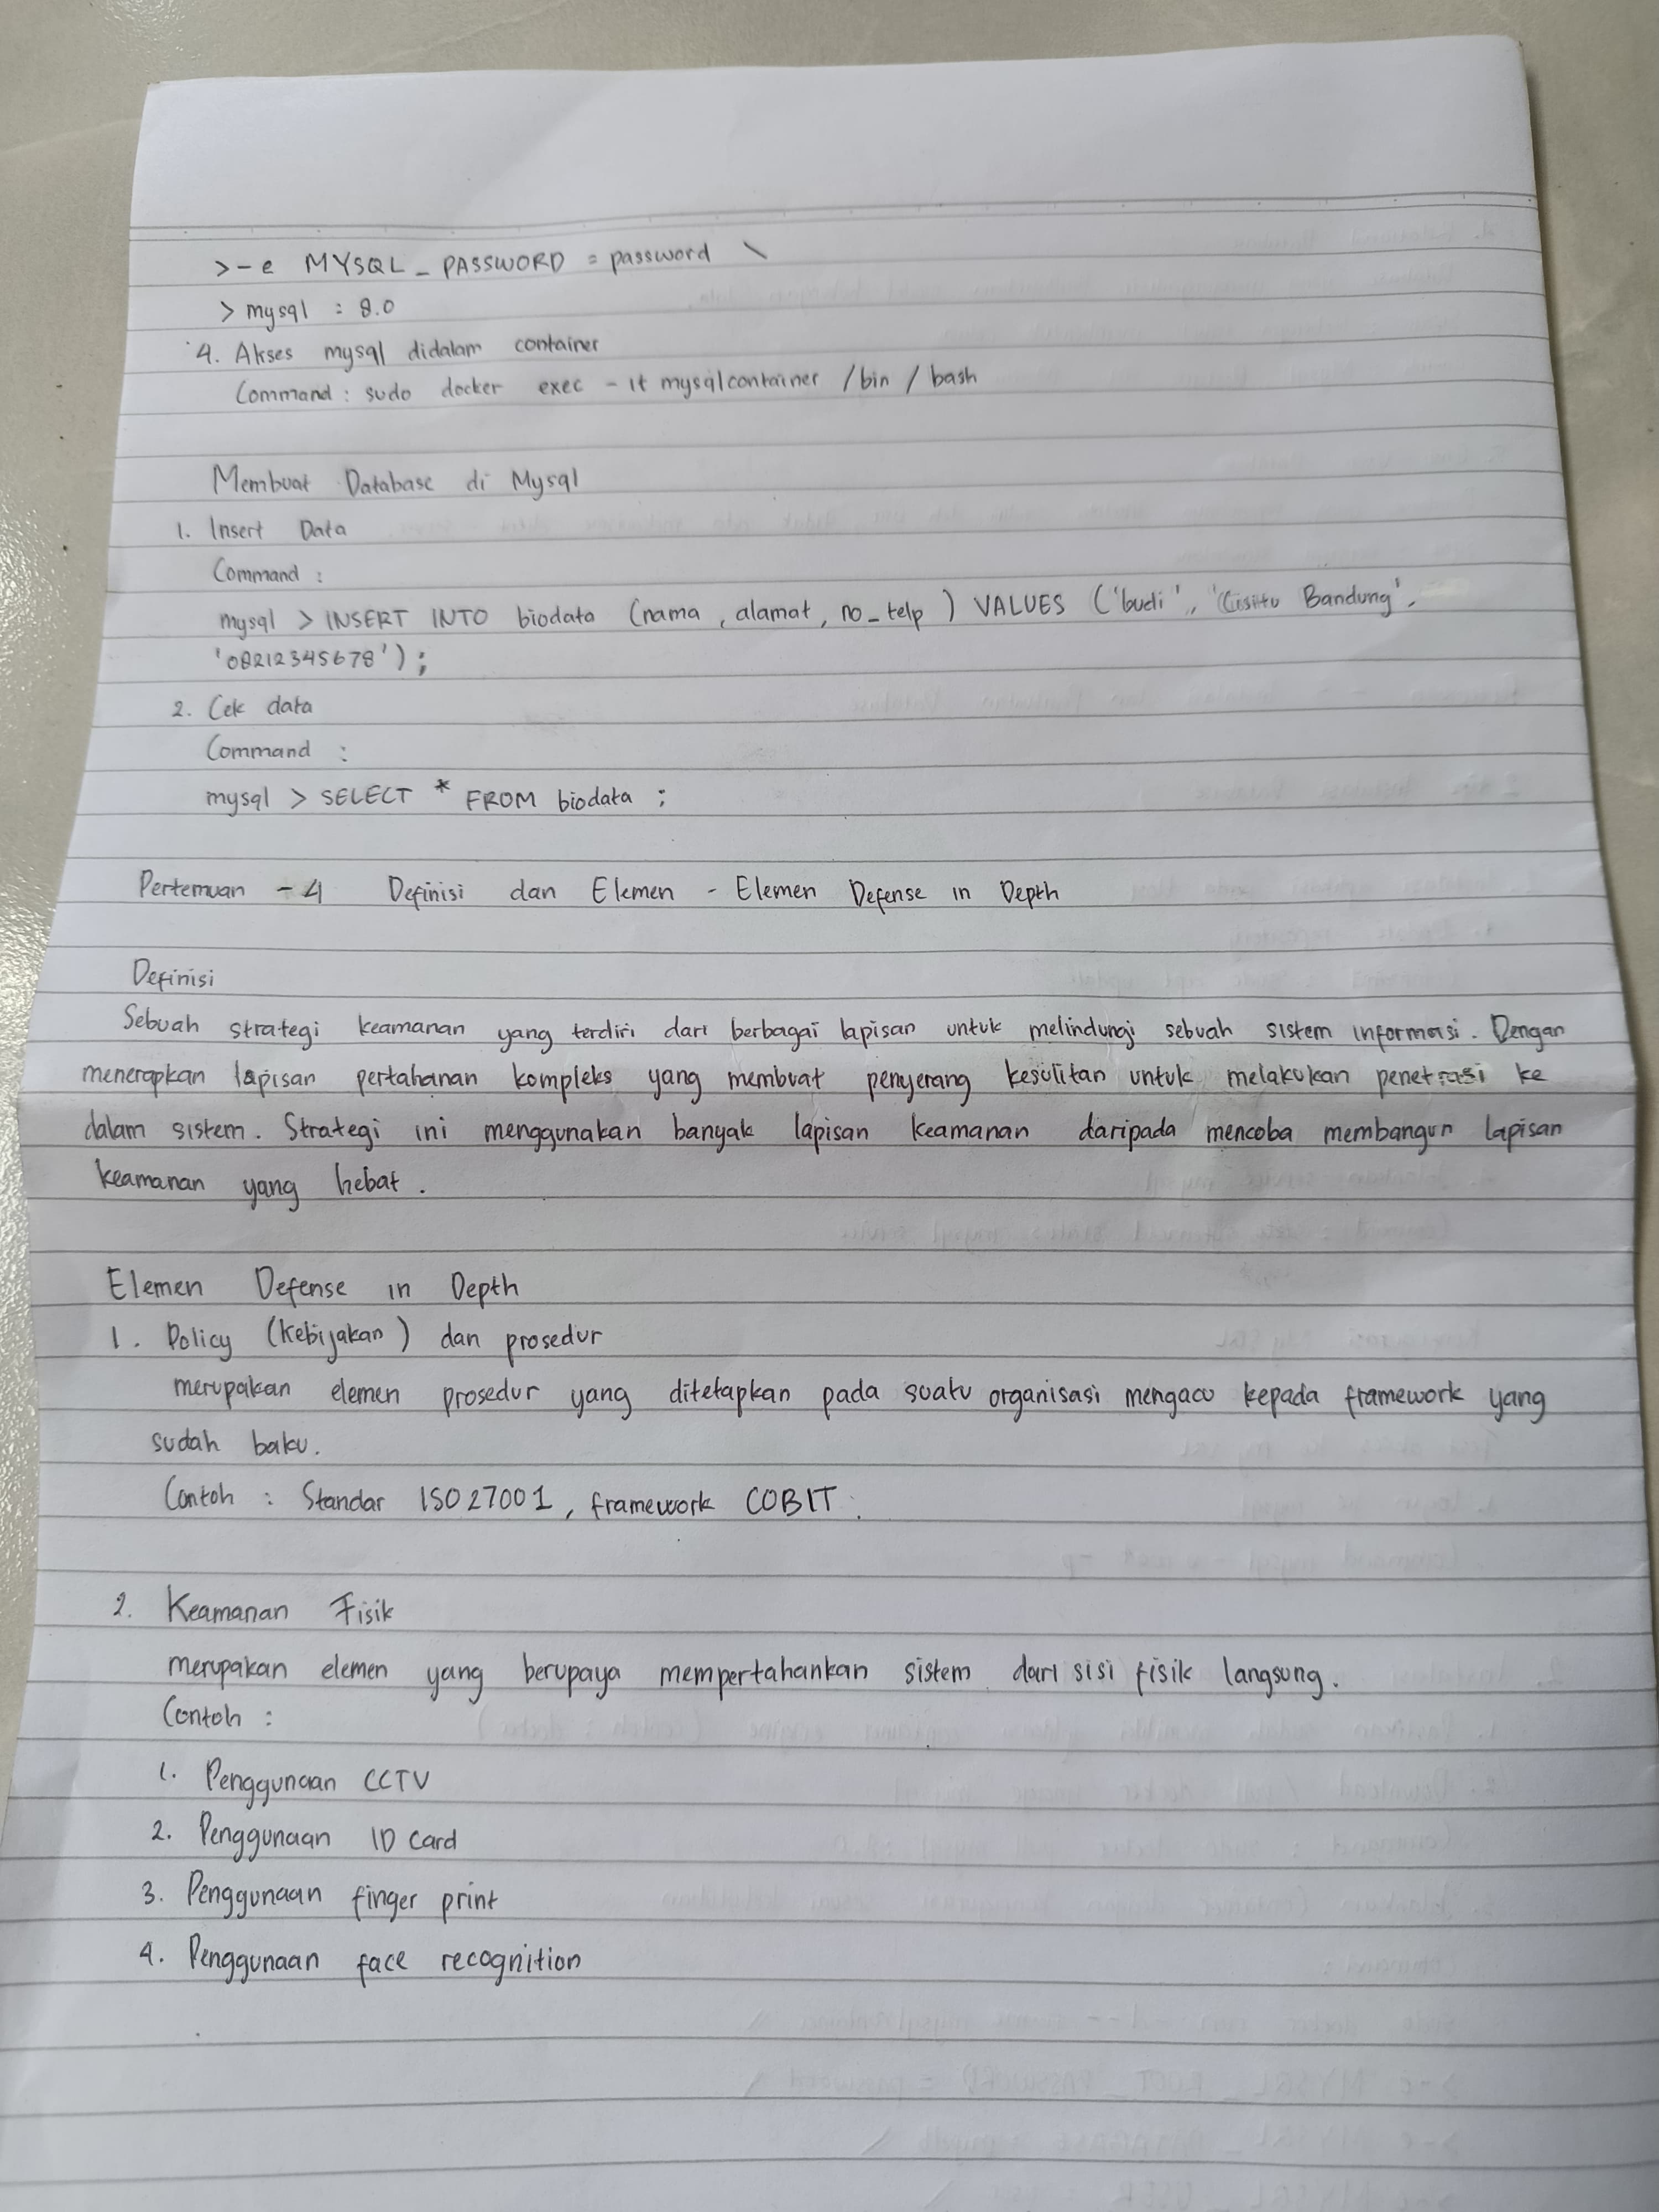 >-e MYSQL_PASSWORD = password \
> mysql : 8.0
4. Akses mysql didalam container
Command : sudo docker exec -it mysqlcontainer /bin / bash
Membuat Database di Mysql
1. Insert Data
Command :
mysql > INSERT INTO biodata (nama, alamat, no_telp ) VALUES ('budi', 'Cisitu Bandung',
'08212345678');
2. Cek data
Command :
mysql > SELECT * FROM biodata ;
Pertemuan - 4 Definisi dan Elemen - Elemen Defense in Depth
Definisi
Sebuah strategi keamanan yang terdiri dari berbagai lapisan untuk melindungi sebuah sistem informasi. Dengan
menerapkan lapisan pertahanan kompleks yang membuat penyerang kesulitan untuk melakukan penetrasi ke
dalam sistem. Strategi ini menggunakan banyak lapisan keamanan daripada mencoba membangun lapisan
keamanan yang hebat.
Elemen Defense in Depth
1. Policy (kebijakan) dan prosedur
merupakan elemen prosedur yang ditetapkan pada suatu organisasi mengacu kepada framework yang
sudah baku.
Contoh : Standar ISO27001, framework COBIT.
2. Keamanan Fisik
merupakan elemen yang berupaya mempertahankan sistem dari sisi fisik langsung.
Contoh :
1. Penggunaan CCTV
2. Penggunaan ID Card
3. Penggunaan finger print
4. Penggunaan face recognition